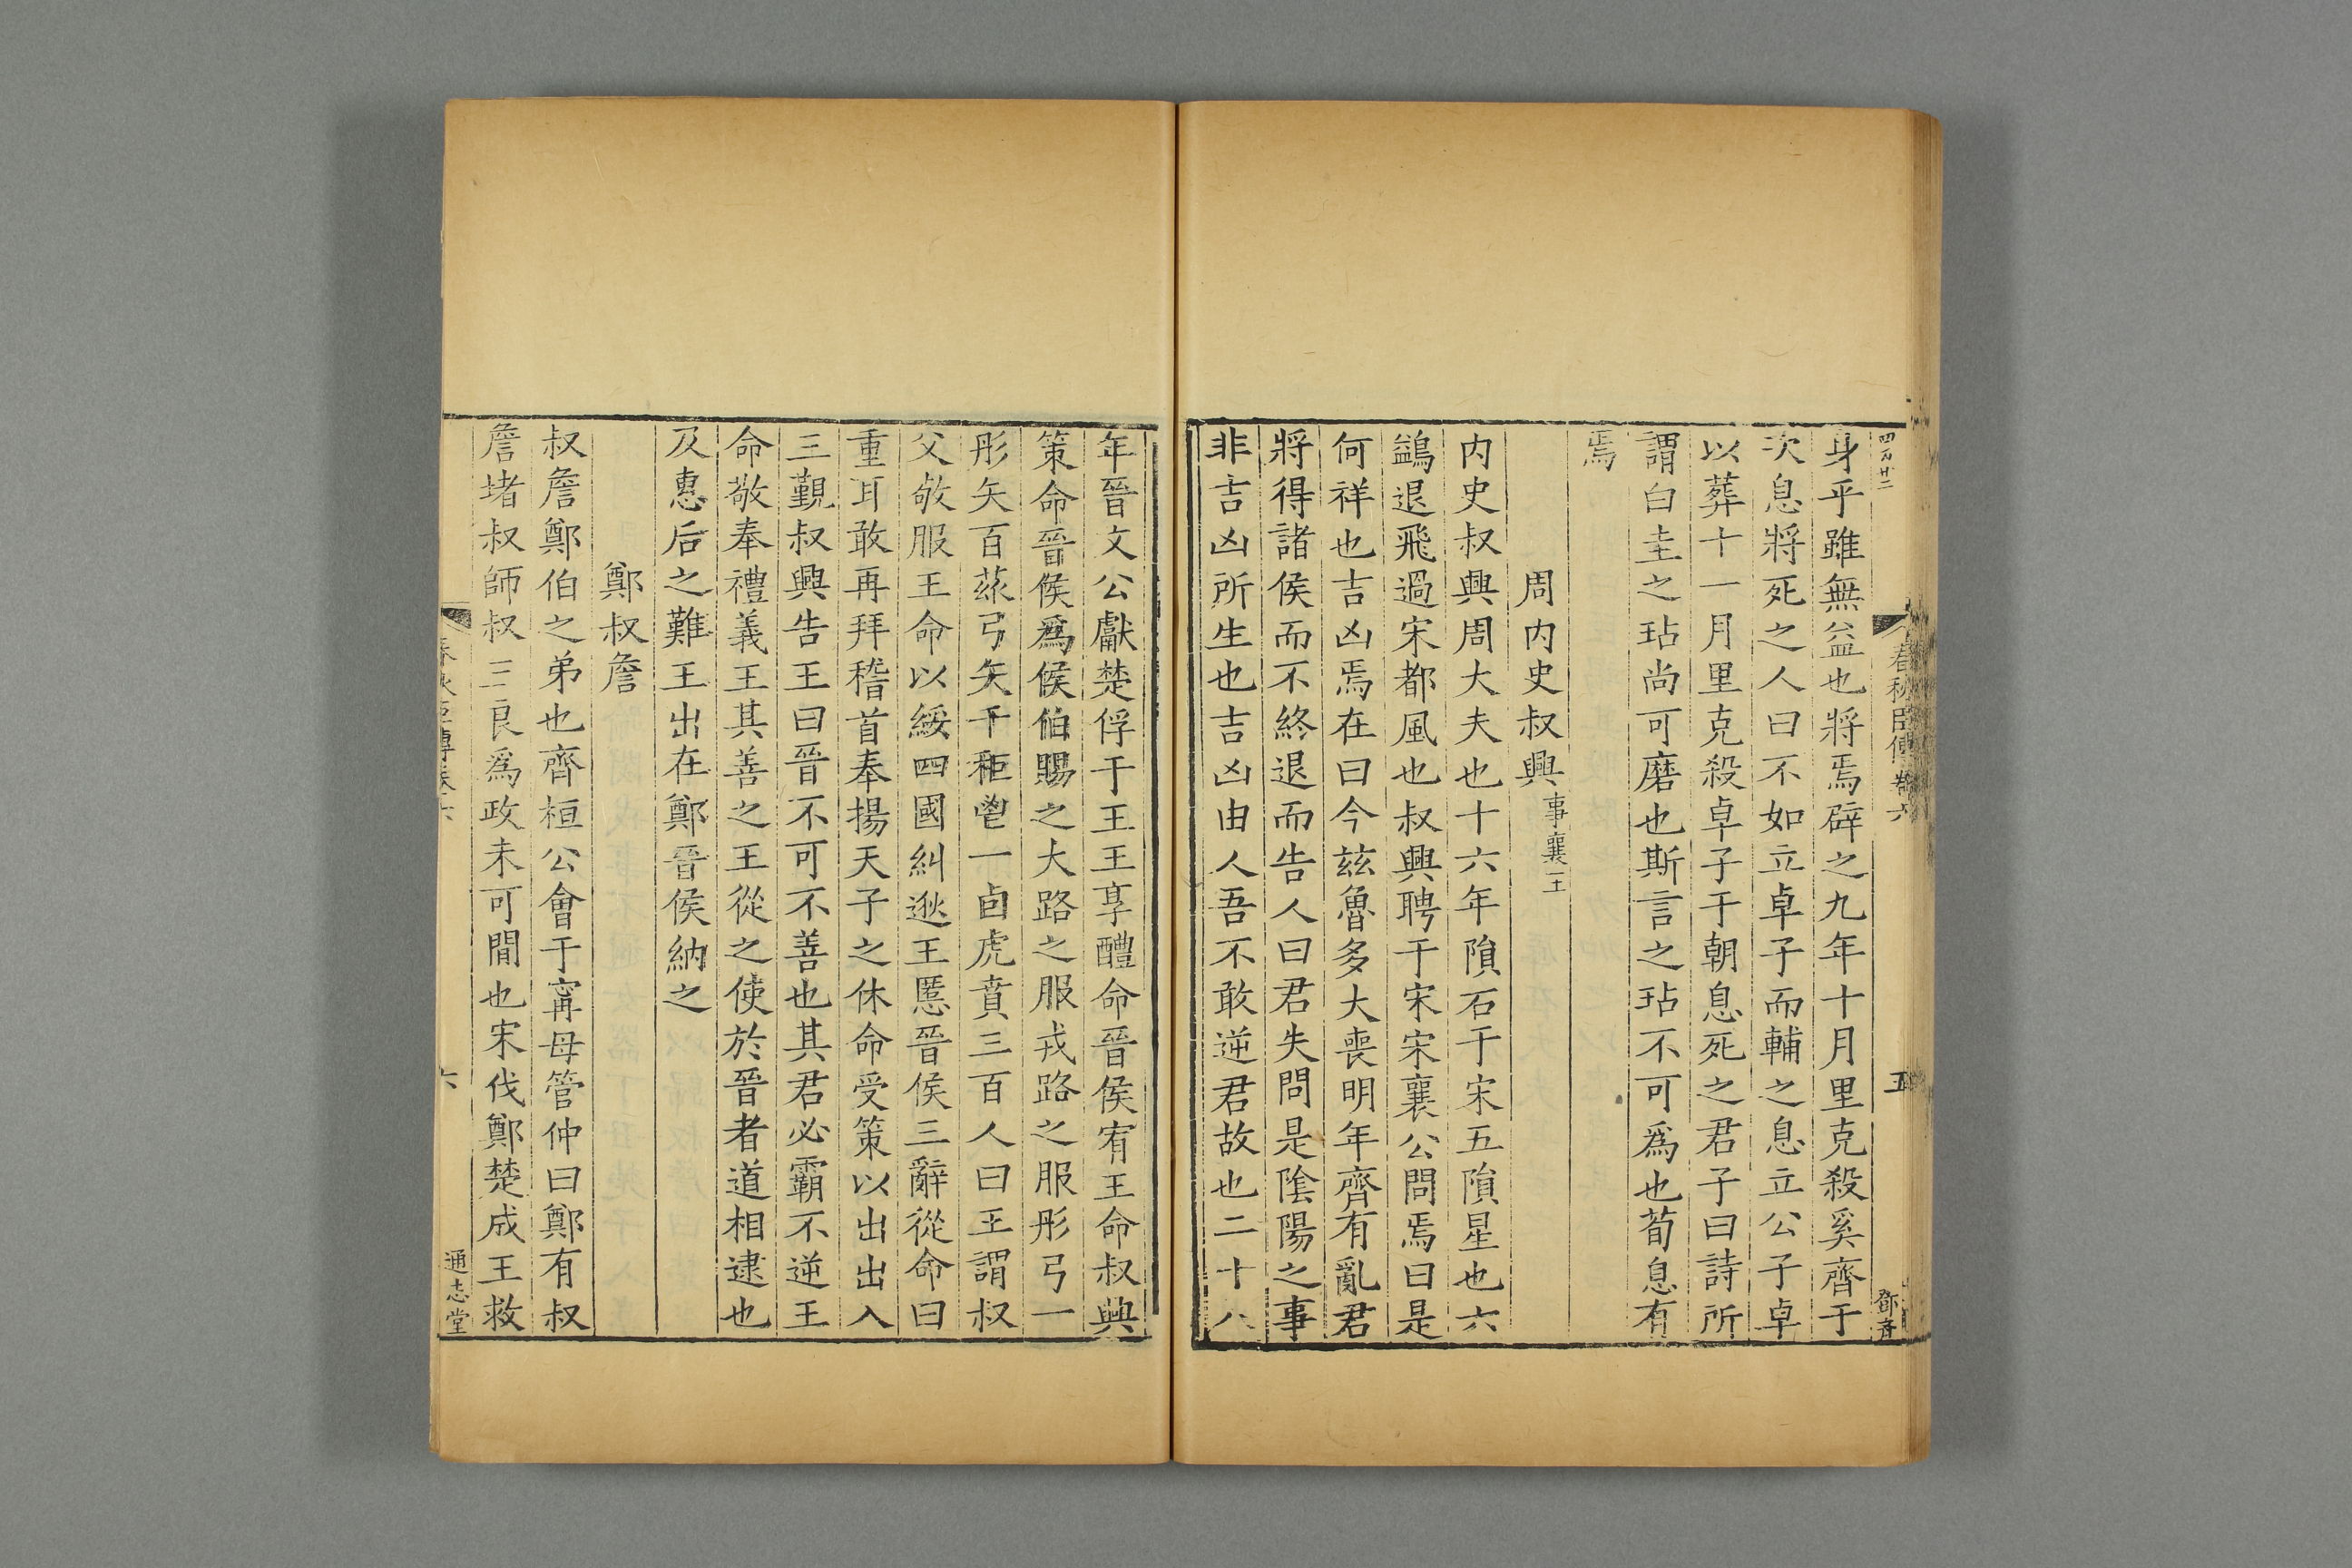 四百廿二
春秋臣傳卷六
五
鄧蔚
身乎雖無益也將焉辟之九年十月里克殺奚齊于
次息將死之人曰不如立卓子而輔之息立公子卓
以葬十一月里克殺卓子于朝息死之君子曰詩所
謂白圭之玷尚可磨也斯言之玷不可爲也荀息有
焉
周内史叔興事襄王
内史叔興周大夫也十六年隕石于宋五隕星也六
鷁退飛過宋都風也叔興聘于宋宋襄公問焉曰是
何祥也吉凶焉在曰今兹魯多大喪明年齊有亂君
將得諸侯而不終退而告人曰君失問是陰陽之事
非吉凶所生也吉凶由人吾不敢逆君故也二十八
年晉文公獻楚俘于王王享醴命晉侯宥王命叔興
策命晉侯爲侯伯賜之大路之服戎路之服彤弓一
彤矢百玈弓矢千秬鬯一卣虎賁三百人曰王謂叔
父敬服王命以綏四國糾逖王慝晉侯三辭從命曰
重耳敢再拜稽首奉揚天子之休命受策以出出入
三覲叔興告王曰晉不可不善也其君必霸不逆王
命敬奉禮義王其善之王從之使於晉者道相逮也
及惠后之難王出在鄭晉侯納之
鄭叔詹
叔詹鄭伯之弟也齊桓公會于甯母管仲曰鄭有叔
詹堵叔師叔三良爲政未可間也宋伐鄭楚成王救
春秋臣傳卷六
六
通志堂